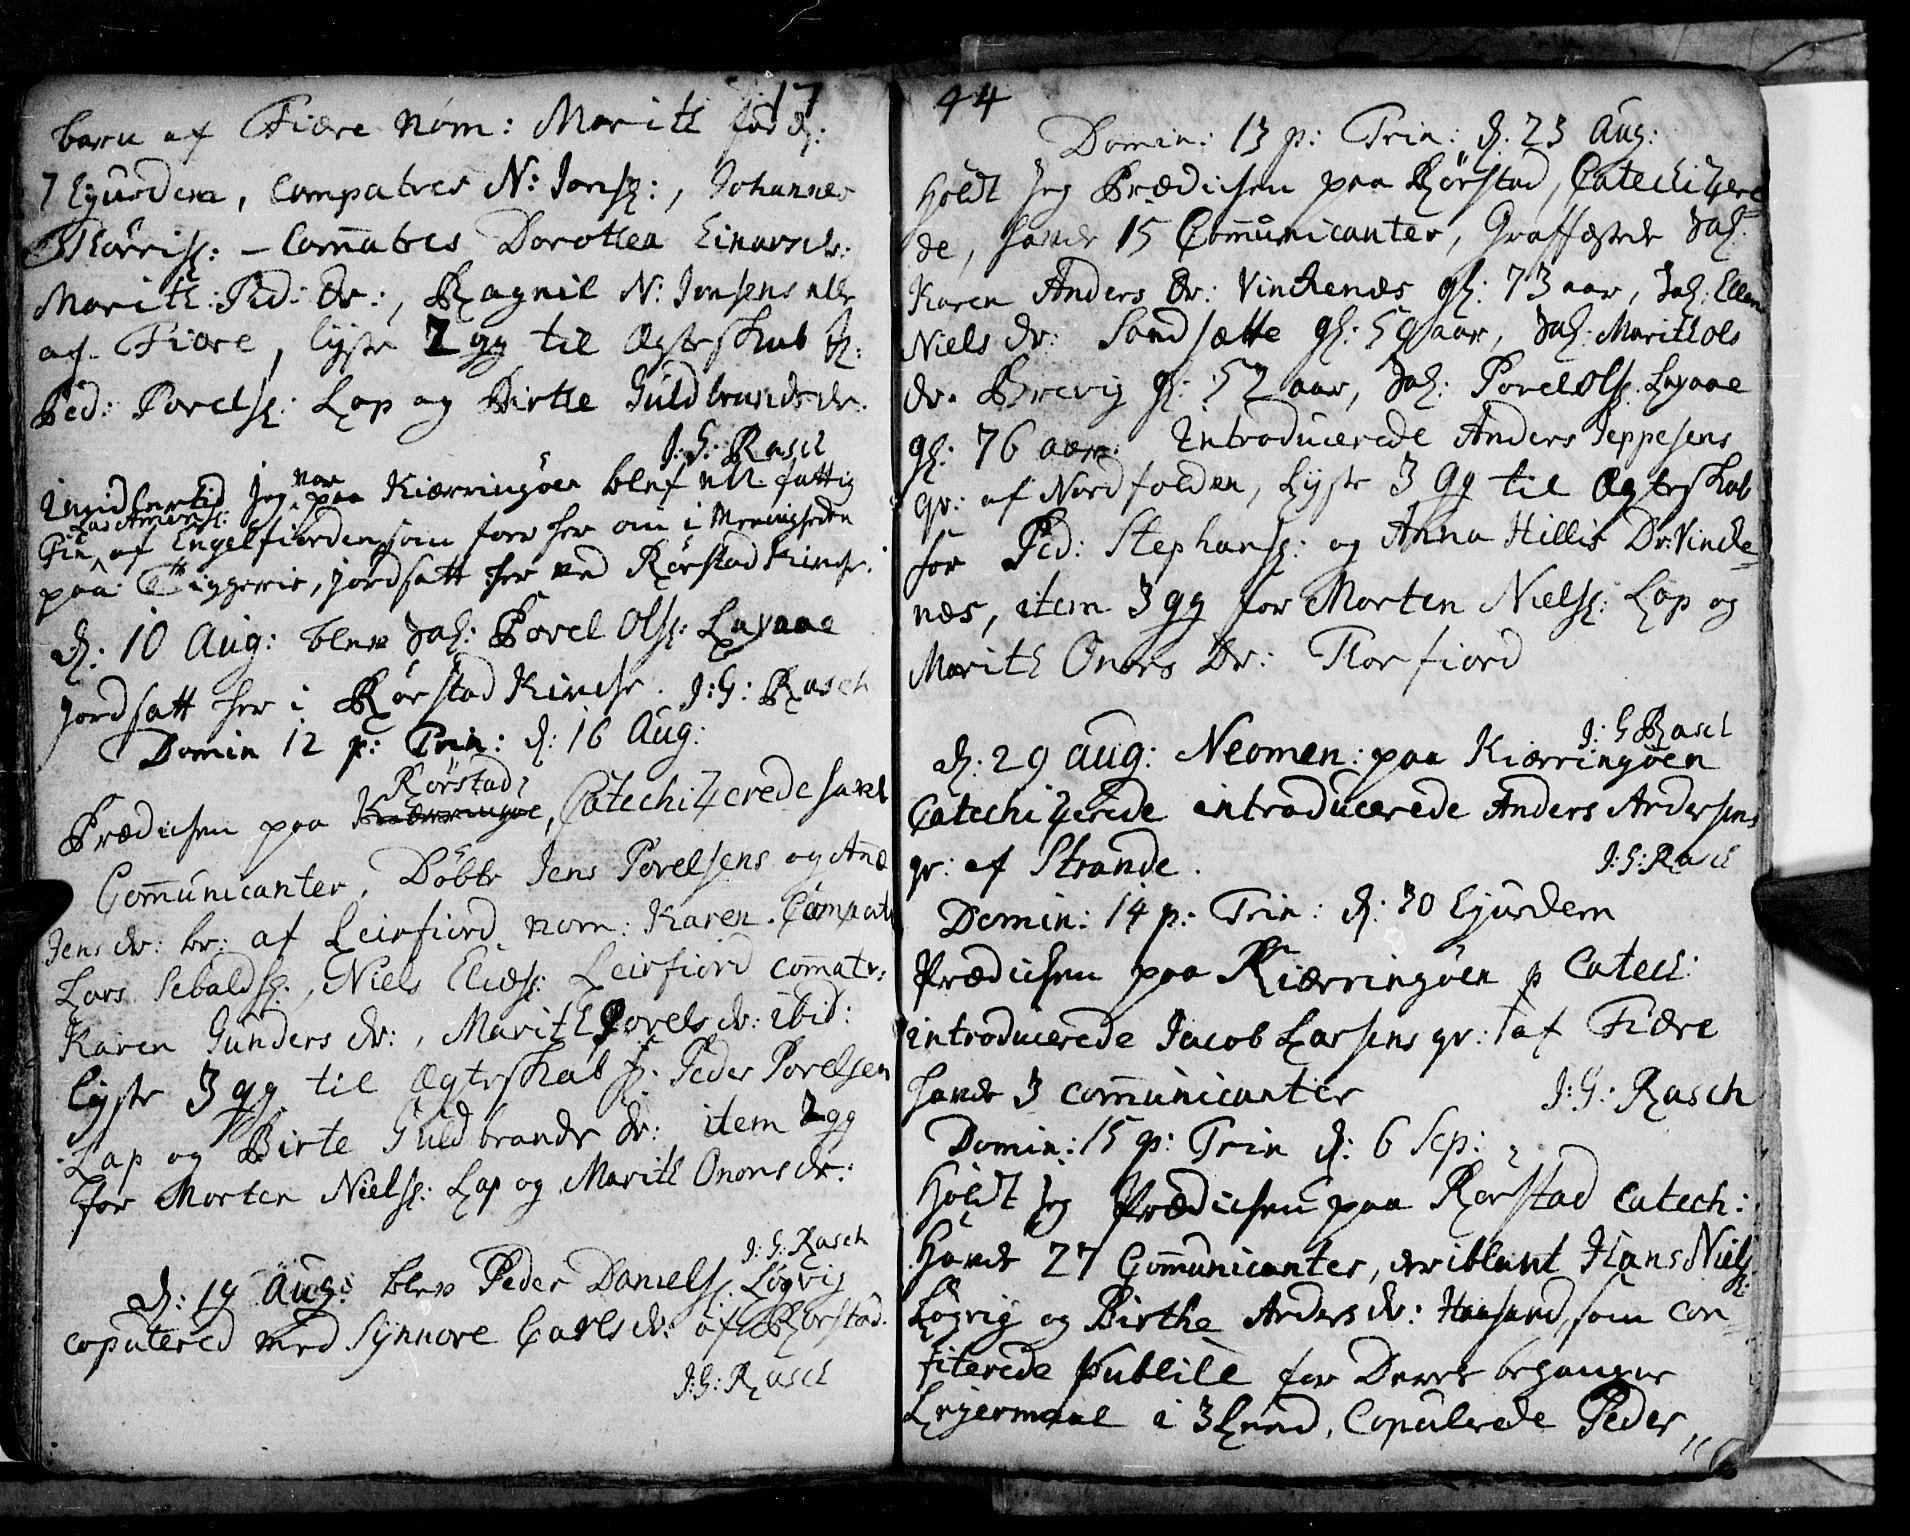 17
barn af Fiære nom: Marith fød d:
7 Ejusdem, Compatres N: Jonsø:, Johannes
Thorrisø: – Comatres Dorothea Einarsdr:
Marith Ped: dr:, Ragnil N: Jonsens alle
af Fiære, lyste 2 gg til Ægteskab f:
Ped: Povelsø: Lap og Birthe Guldbrandsdr.
J: G: Rasch
Imidlertid jeg var paa Kiærringøen blef en fattig
Fin Lars Amundsø: af Engelfiorden som foer her om i Menigheden
paa Tiggerie, jordsatt her ved Rørstad Kirche.
d: 10 Aug: blev Sal: Povel Olsø: Løgaae
jordsatt her i Rørstad Kirche. J: G: Rasch
Domin 12 p: Trin: d: 16 Aug:
Prædichen paa Kiærringøe Rørstad, Catechizerede havde
Communicanter, Døbte Jens Povelsens og Ane
Jens dr: br: af Leirfiord nom: Karen. Compatr
Lars Sebaldsø:, Niels Eliæsø: Leirfiord comatr:
Karen Gunders dr:, Marith Povels dr: ibid:
lyste 3 gg til Ægteskab f. Peder Povelsen
Lap og Birte Guldbrands dr: item 2 gg
for Morten Nielsø: Lap og Marith Onors dr:
J: G: Rasch
d: 19 Aug: blev Peder Danielsø: Løgvig
copulered med Synnove Carls dr: af Rørstad.
J: G: Rasch
44
Domin: 13 p: Trin: d: 23 Aug:
Holdt jeg Prædichen paa Rørstad, Catechizere
de, havde 15 Communicanter, Graffæstede Sal:
Karen Anders dr: Vinckenæs gl: 73 aar, Sal: Ellen
Niels dr: Sandsætte gl: 59 aar, Sal: Marith Ols
dr. Brevig gl: 52 aar, Sal: Povel Olsø: Løgaae
gl: 76 aar. Introducerede Anders Jeppesens
qv: af Nordfolden, Lyste 3 gg til Ægteskab
for Ped: Stephansø: og Anna Hillis Dr: Vincke
næs, item 3 gg for Morten Nielsø: Lap og
Marith Onors Dr: Torfiord
J: G Rasch
d: 29 Aug: Neomen: paa Kiærringøen
Catechizerede introducerede Anders Andersens
qv: af Strande.
J: G: Rasch
Domin: 14 p: Trin: d: 30 Ejusdem
Prædichen paa Kiærringøen Catech:
introducerede Jacob Larsens qv: af Fiære
havde 3 communicanter
J: G: Rasch
Domin: 15 p: Trin d: 6 Sep:
Holdt jeg Prædichen paa Rørstad Catech:
Havde 27 Communicanter, deriblant Hans Nielsø:
Løgvig og Birthe Anders dr: som con
fiterede publice for Deres begangne
Leyermaal i 3 Leed, Copulerede Peder